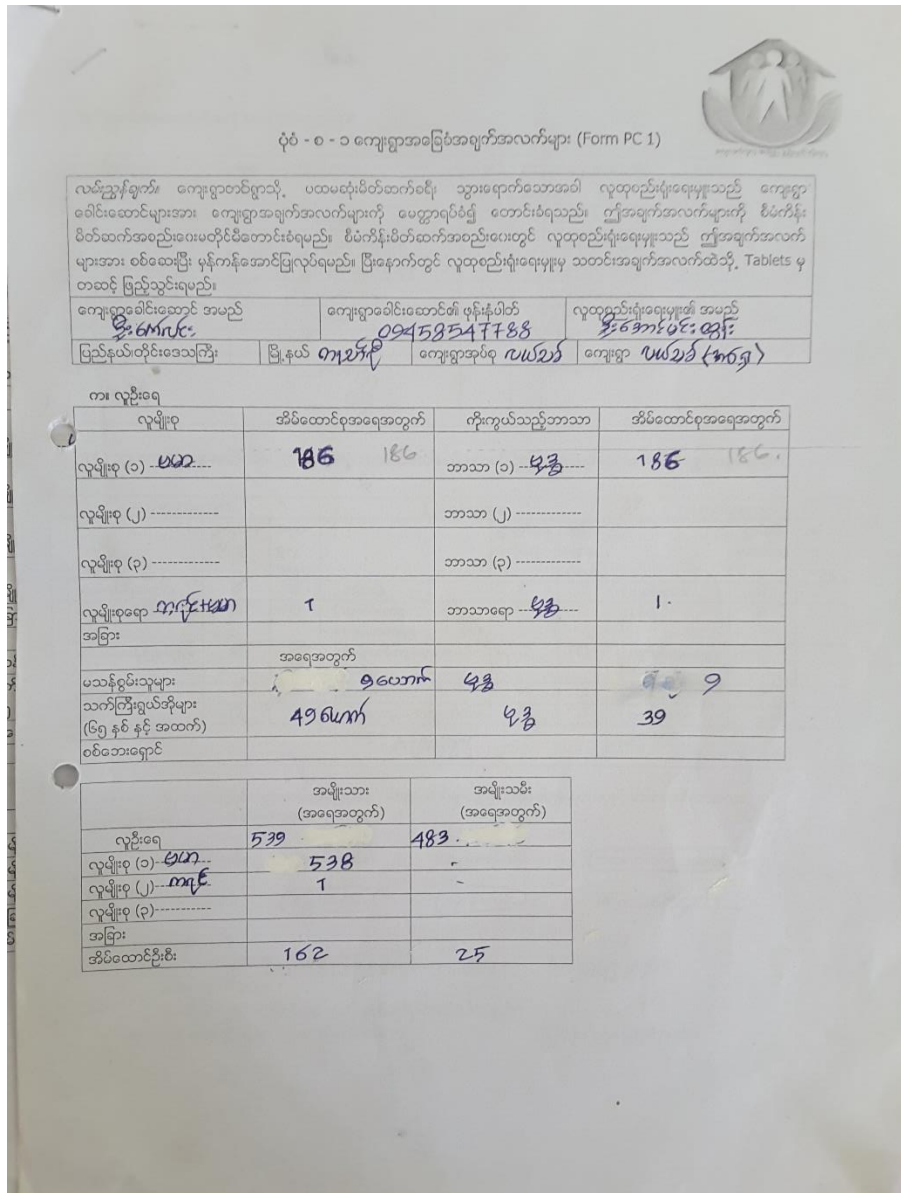 ပုံစံ - စ - ၁ ကျေးရွာအခြေခံအချက်အလက်များ (Form PC 1)
လမ်းညွှန်ချက်။ ကျေးရွာတစ်ရွာသို့ ပထမဆုံးမိတ်ဆက်ခရီး သွားရောက်သောအခါ လူထုစည်းရုံးရေးမှူးသည် ကျေးရွာ
ခေါင်းဆောင်များအား ကျေးရွာအချက်အလက်များကို မေတ္တာရပ်ခံ၍ တောင်းခံရသည်။ ဤအချက်အလက်များကို စီမံကိန်း
မိတ်ဆက်အစည်းဝေးမတိုင်မီတောင်းခံရမည်။ စီမံကိန်းမိတ်ဆက်အစည်းဝေးတွင် လူထုစည်းရုံးရေးမှူးသည် ဤအချက်အလက်
များအား စစ်ဆေးပြီး မှန်ကန်အောင်ပြုလုပ်ရမည်။ ပြီးနောက်တွင် လူထုစည်းရုံးရေးမှူးမှ သတင်းအချက်အလက်ထဲသို့ Tablets မှ
တဆင့် ဖြည့်သွင်းရမည်။
ကျေးရွာခေါင်းဆောင် အမည် ကျေးရွာခေါင်းဆောင်၏ ဖုန်းနံပါတ် လူထုစည်းရုံးရေးမှူး၏ အမည်
09458547788 ဦးအောင်မင်းထွန်း
ပြည်နယ်/တိုင်းဒေသကြီး မြို့နယ် ကျေးရွာအုပ်စု လယ်သစ် ကျေးရွာ လယ်သစ်
က။ လူဦးရေ
လူမျိုးစု အိမ်ထောင်စုအရေအတွက် ကိုးကွယ်သည့်ဘာသာ အိမ်ထောင်စုအရေအတွက်
လူမျိုးစု (၁) ဗမာ 186 186 ဘာသာ (၁) ဗုဒ္ဓ 186 186.
လူမျိုးစု (၂) ------------- ဘာသာ (၂) -------------
လူမျိုးစု (၃) ------------- ဘာသာ (၃) -------------
လူမျိုးစုရော ကရင်+ဗမာ 1 ဘာသာရော ဗုဒ္ဓ 1.
အခြား
အရေအတွက်
မသန်စွမ်းသူများ 9 ယောက် ဗုဒ္ဓ 9
သက်ကြီးရွယ်အိုများ
(၆၅ နှစ် နှင့် အထက်) 49 ယောက် ဗုဒ္ဓ 39
စစ်ဘေးရှောင်
အမျိုးသား အမျိုးသမီး
(အရေအတွက်) (အရေအတွက်)
လူဦးရေ 539 483.
လူမျိုးစု (၁) ဗမာ 538 -
လူမျိုးစု (၂) ကရင် 1 -
လူမျိုးစု (၃)-----------
အခြား
အိမ်ထောင်ဦးစီး 162 25